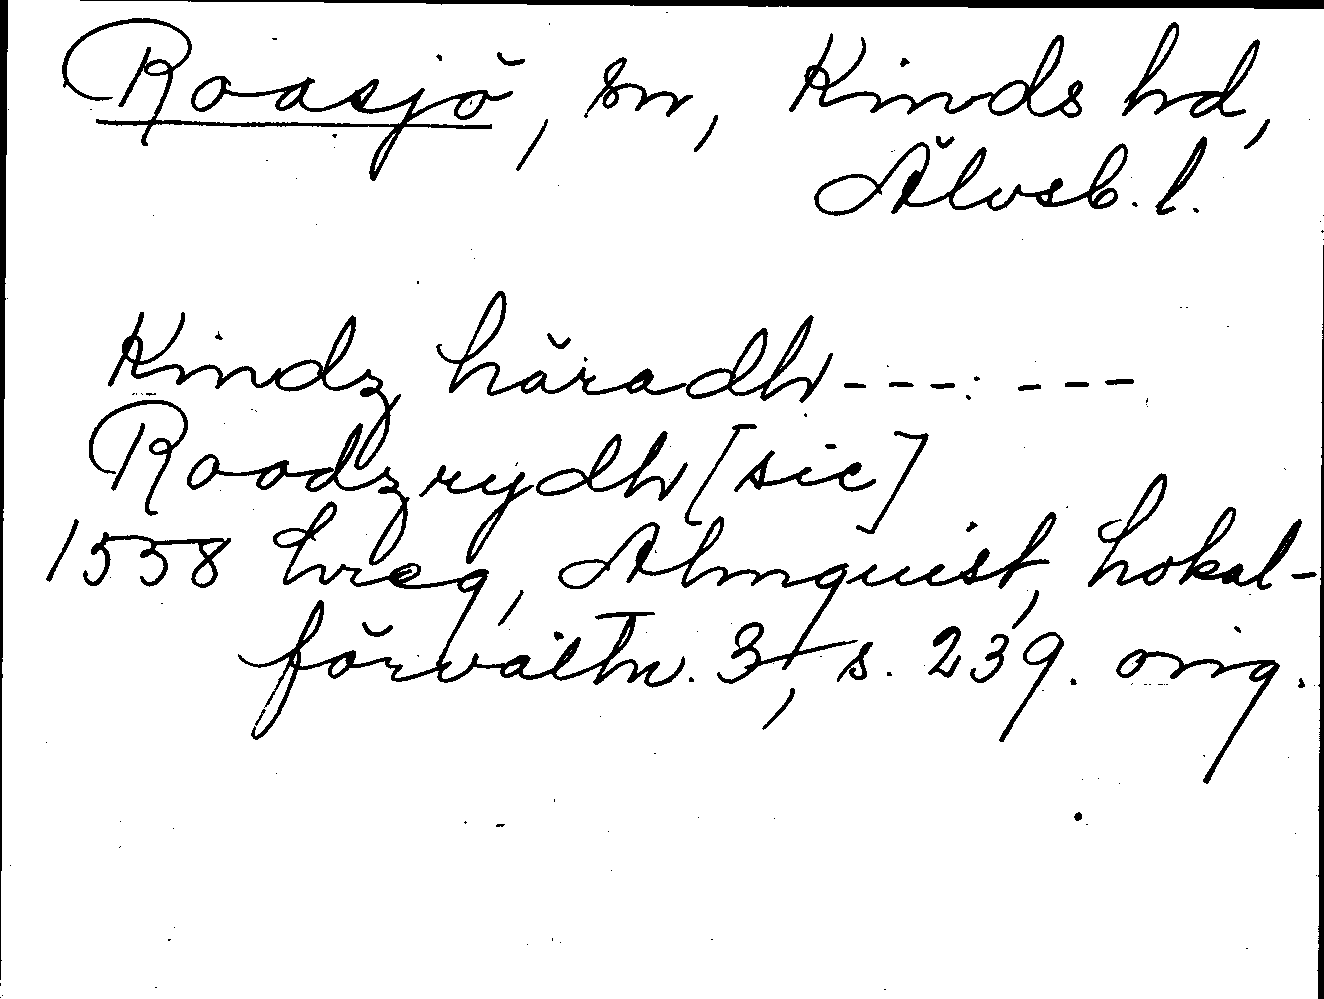 Roasjö, sn, Kinds hd,
Älvsb. l.
Kindz häradh --- ---
Roodzrydh [sic]
1558 hreg, Almquist, Lokal-
förvaltn. 3, s. 239. orig.